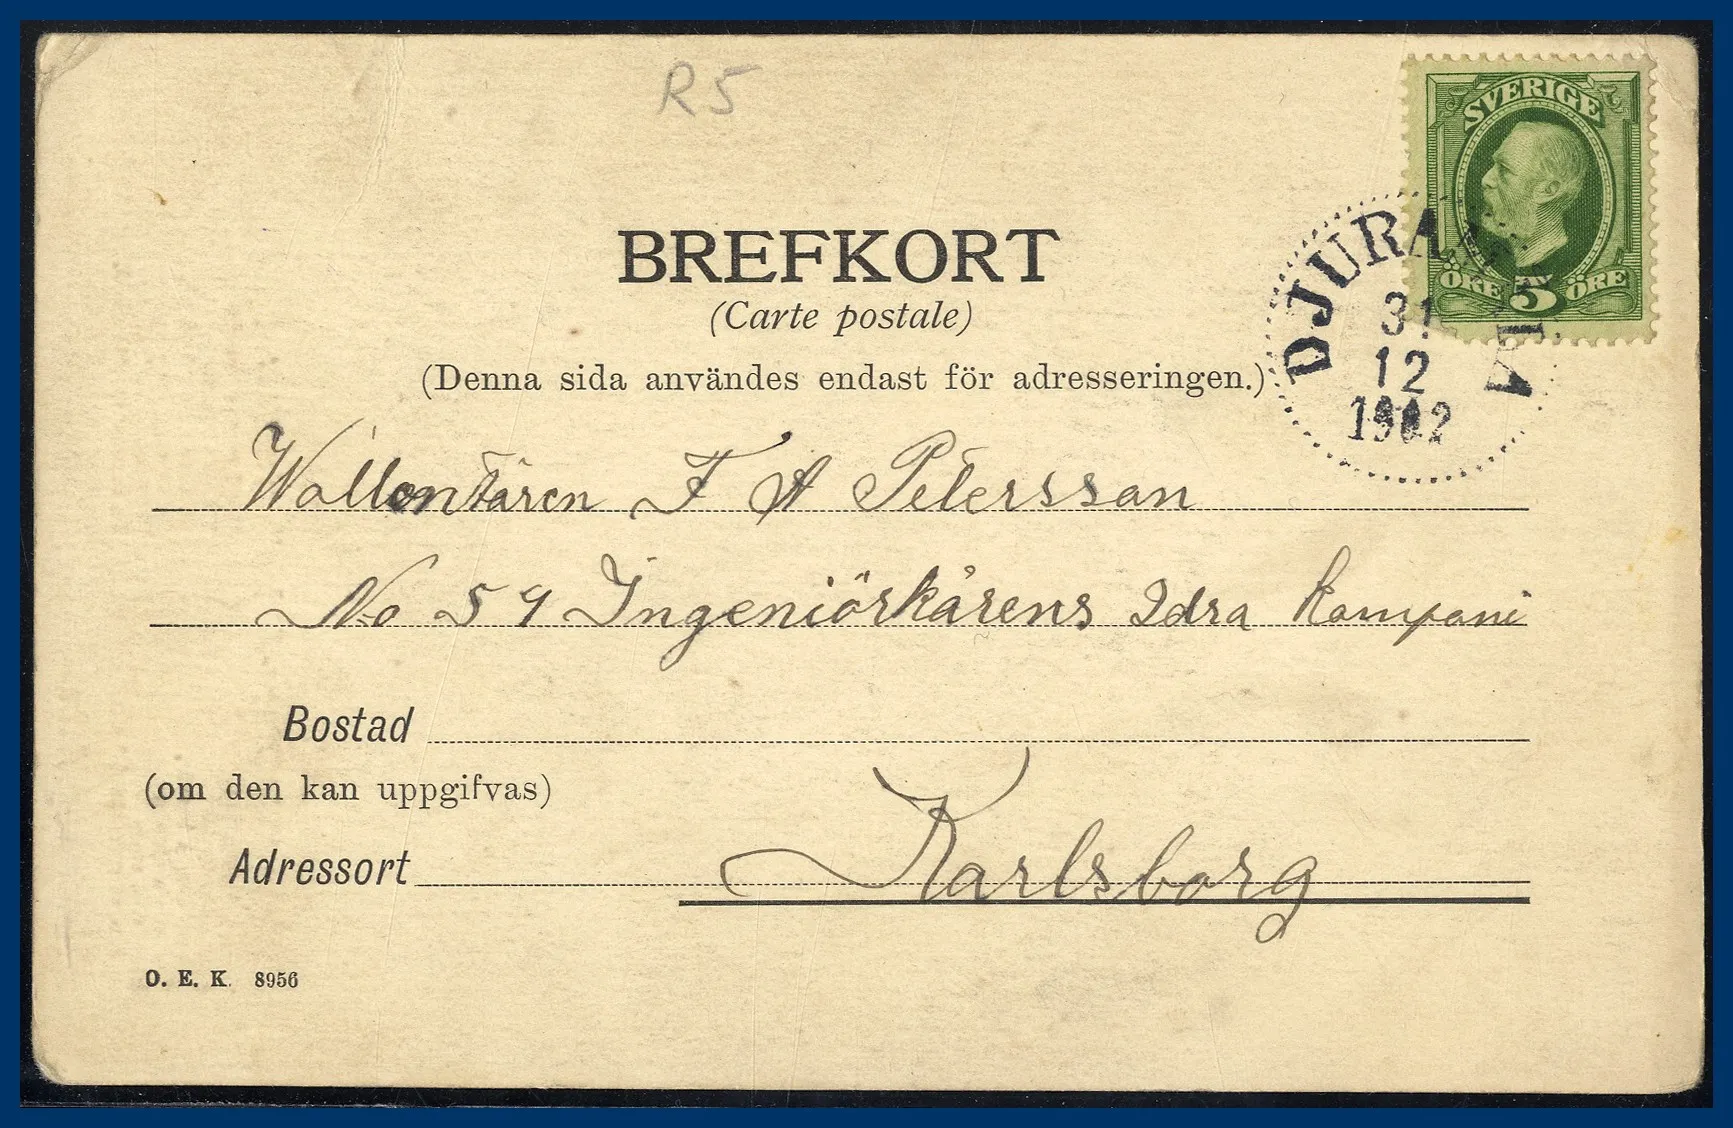 R5
SVERIGE
ÖRE 5 ÖRE
DJURA
31
12
1902
BREFKORT
(Carte postale)
(Denna sida användes endast för adresseringen.)
Wollontären F A Peterssan
No 59 Ingeniörkårens 2dra Kompani
Bostad
(om den kan uppgifvas)
Adressort Karlsborg
O. E. K. 8956